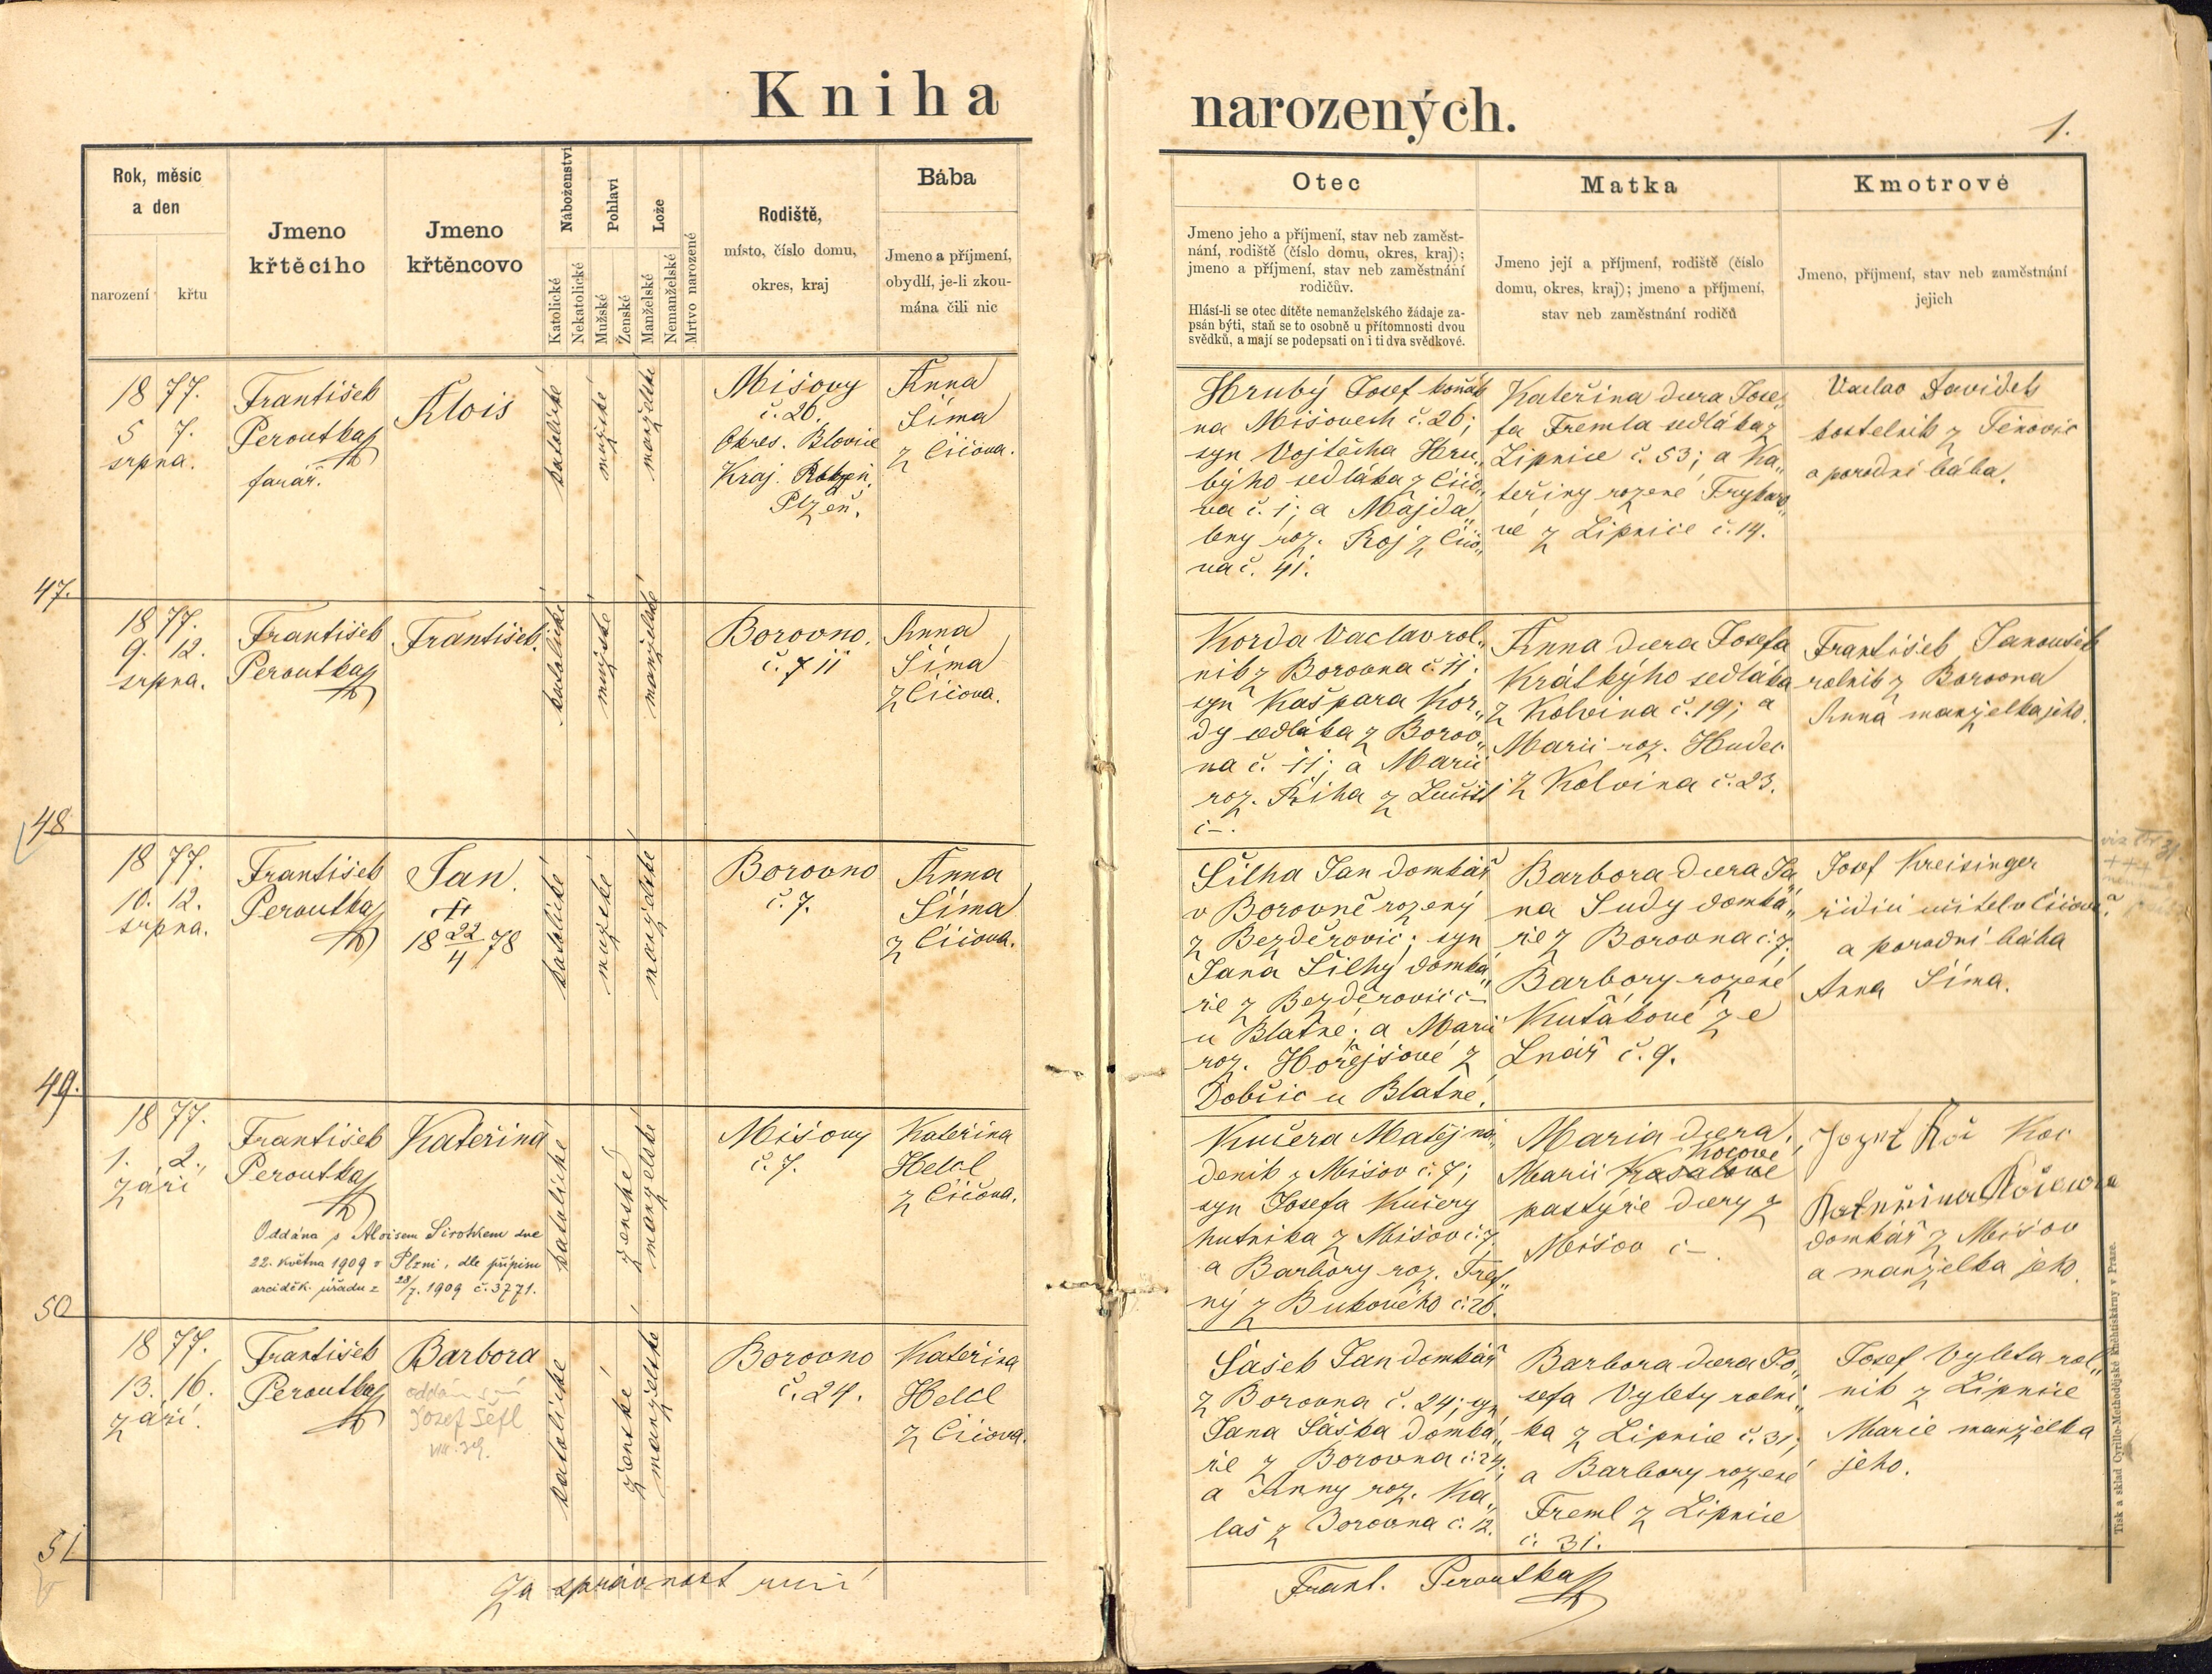 Kniha
narozených.
1.
Rok, měsíc
a den
narození
křtu
Jmeno
křtěcího
Jmeno
křtěncovo
Náboženství
Katolické
Nekatolické
Pohlaví
Mužské
Ženské
Lože
Manželské
Nemanželské
Mrtvo narozené
Rodiště,
místo, číslo domu,
okres, kraj
Bába
Jmeno a příjmení,
obydlí, je-li zkou-
mána čili nic
Otec
Jmeno jeho a příjmení, stav neb zaměst-
nání, rodiště (číslo domu, okres, kraj);
jmeno a příjmení, stav neb zaměstnání
rodičův.
Hlásí-li se otec dítěte nemanželského žádaje za-
psán býti, staň se to osobně u přítomnosti dvou
svědků, a mají se podepsati on i ti dva svědkové.
Matka
Jmeno její a příjmení, rodiště (číslo
domu, okres, kraj); jmeno a příjmení,
stav neb zaměstnání rodičů
Kmotrové
Jmeno, příjmení, stav neb zaměstnání
jejich
47.
1877.
5 7.
srpna.
František
Peroutka
farář.
Alois
katolické
mužské
manželské
Mišovy
č. 26.
Okres. Blovice
Kraj.
Plzeň.
Anna
Šíma
z Číčova.
Hrubý Josef
na Mišovech č. 26;
syn Vojtěcha Hru„
býho sedláka z Číčo„
va č. 1; a Majda„
leny roz. Roj z Číčo„
va č. 41.
Kateřina dcera Jose„
fa Fremla sedláka z
Lipnice č. 53; a Ka„
teřiny rozené
vé z Lipnice č. 14.
Václav
kostelník z Těnovic
a porodní bába.
48
1877.
9. 12.
srpna.
František
Peroutka
František.
katolické
mužské
manželské
Borovno.
č. 7 11
Anna
Šíma
z Číčova.
Korda Václav rol„
ník z Borovna č. 11;
syn Kašpara Kor„
dy sedláka z Borov„
na č. 11; a Marii
roz. Říha z
č –.
Anna dcera Josefa
Krátkýho sedláka
z Kolvína č. 19; a
Marii roz. Hudec
z Kolvína č. 23.
František Janoušek
rolník z Borovna
Anna manželka jeho.
49.
1877.
10. 12.
srpna.
František
Peroutka
Jan.
+
18 22/4 78
katolické
mužské
manželské
Borovno
č. 7.
Anna
Šíma
z Číčova.
Šilha Jan domkář
v Borovně rozený
z Bezděrovic; syn
Jana Šilhy domká„
ře z Bezděrovic č –
u Blatné; a Marii
roz. Hořejšové z
Dobšic u Blatné.
Barbora dcera Ja„
na Sudy domká„
ře z Borovna č. 7;
Barbory rozené
Kuťákové ze
Lnář č. 9.
Josef Kreisinger
řídící učitel v Číčově
a porodní bába
Anna Šíma.
50
1877.
1. 2.
září
František
Peroutka
Kateřina
Oddána s Aloisem Sirotkem dne
22. května 1909 v Plzni, dle přípisu
arciděk. úřadu z 28/7. 1909 č. 3771.
katolické
ženské
manželské
Mišovy
č. 7.
Kateřina
Helcl
z Číčova.
Kučera Matěj ná„
deník z Mišov č. 7;
syn Josefa Kučery
hutníka z Mišov č. 7.
a Barbory roz.
ný z Bukového č. 26.
Maria dcera
Kocové
Marii
pastýře dcery z
Mišov č –.
Jozef Koc
Kateřina Kocowa
domkář z Mišov
a manželka jeho.
51
1877.
13. 16.
září.
František
Peroutka
Barbora
Josef Šefl
katolické
ženské
manželské
Borovno
č. 24.
Kateřina
Helcl
z Číčova.
Šašek Jan domkář
z Borovna č. 24; syn
Jana Šaška domká„
ře z Borovna č. 24;
a Anny roz. Ka„
laš z Borovna č. 12.
Barbora dcera Jo„
sefa Vylety rolní„
ka z Lipnice č. 31;
a Barbory rozené
Freml z Lipnice
č. 31.
Josef Vyleta rol„
ník z Lipnice
Marie manželka
jeho.
Za správnost ručí
Frant. Peroutka
Tisk a sklad Cyrillo-Methodějské knihtiskárny v Praze.